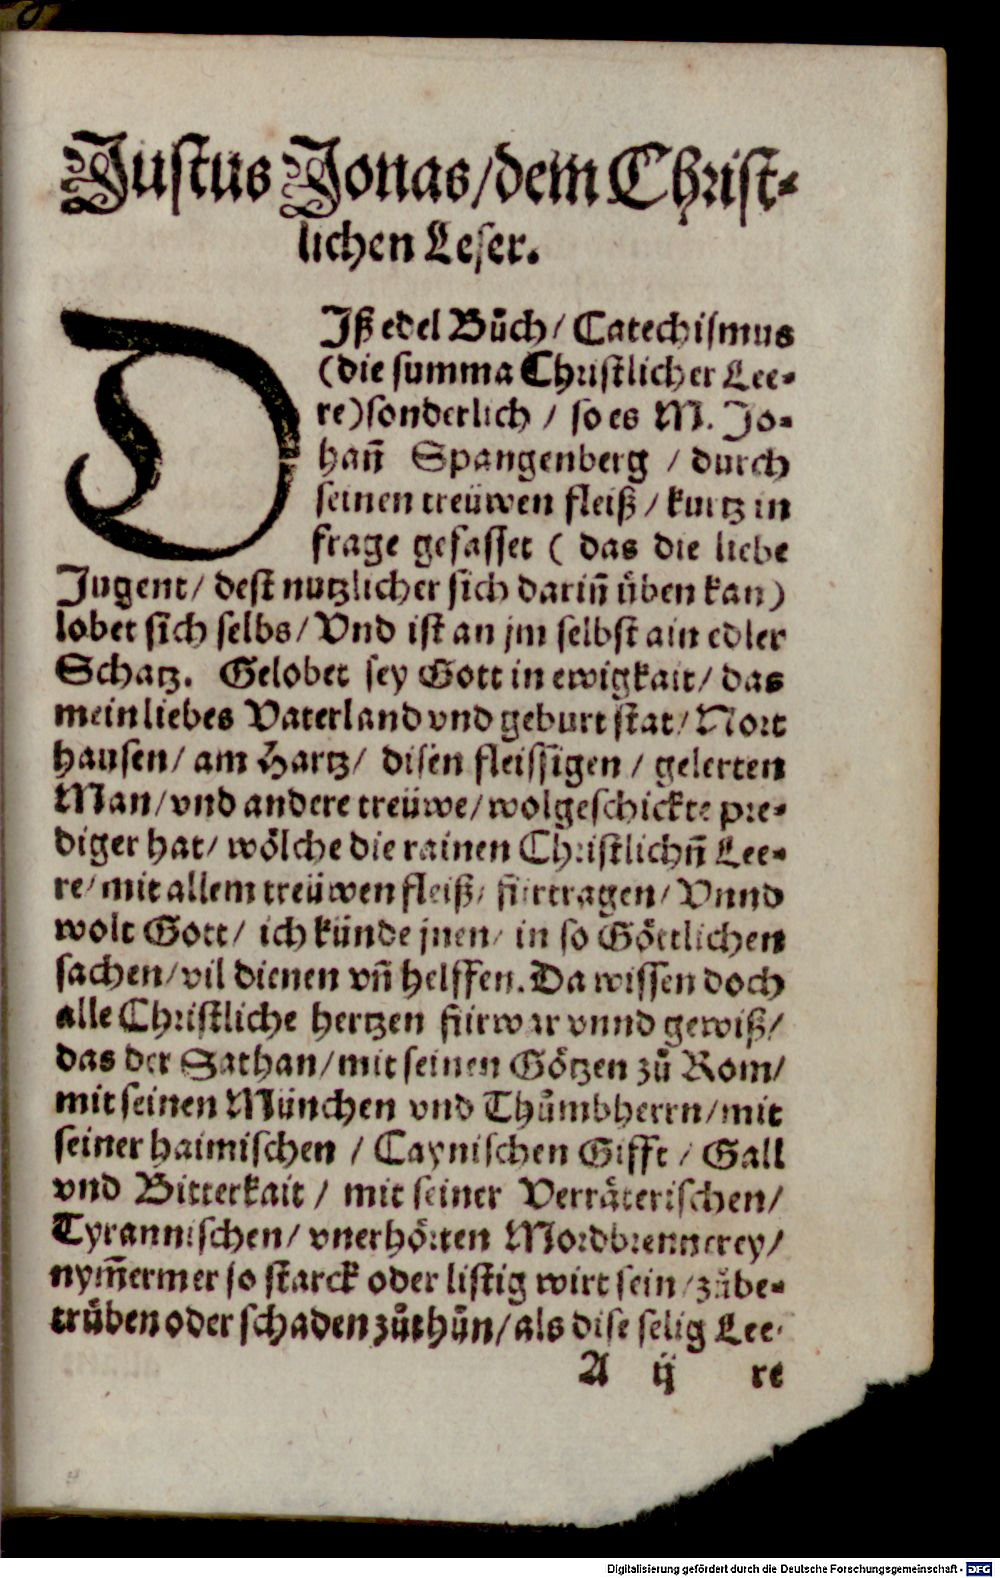 Justus Jonas/dem Christ-
lichen Leser.
DIß edel Bůch/ Catechismus
(die summa Christlicher Lee-
re)sonderlich / so es M. Jo-
hañ Spangenberg / durch
seinen treüwen fleiß/ kurtz in
frage gefasset ( das die liebe
Jugent/ dest nutzlicher sich dariñ üben kan)
lobet sich selbs/ Vnd ist an jm selbst ain edler
Schatz. Gelobet sey Gott in ewigkait/ das
mein liebes Vaterland vnd geburt stat/ Nort
hausen/ am Hartz/ disen fleissigen / gelerten
Man/vnd andere treüwe/wolgeschickte pre-
diger hat/ wölche die rainen Christlichñ Lee-
re/ mit allem treüwen fleiß/ fürtragen/ Vnnd
wolt Gott/ ich künde jnen/ in so Göttlichen
sachen/vil dienen vñ helffen. Da wissen doch
alle Christliche hertzen fürwar vnnd gewiß/
das der Sathan/mit seinen Götzen zů Rom/
mit seinen München vnd Thůmbherrn/mit
seiner haimischen / Caynischen Gifft / Gall
vnd Bitterkait / mit seiner Verräterischen/
Tyrannischen/ vnerhörten Mordbrennerey/
nym̃ermer so starck oder listig wirt sein/zůbe-
trüben oder schaden zůthůn/als dise selig Lee-
A ij re
Digitalisierung gefördert durch die Deutsche Forschungsgemeinschaft - DFG